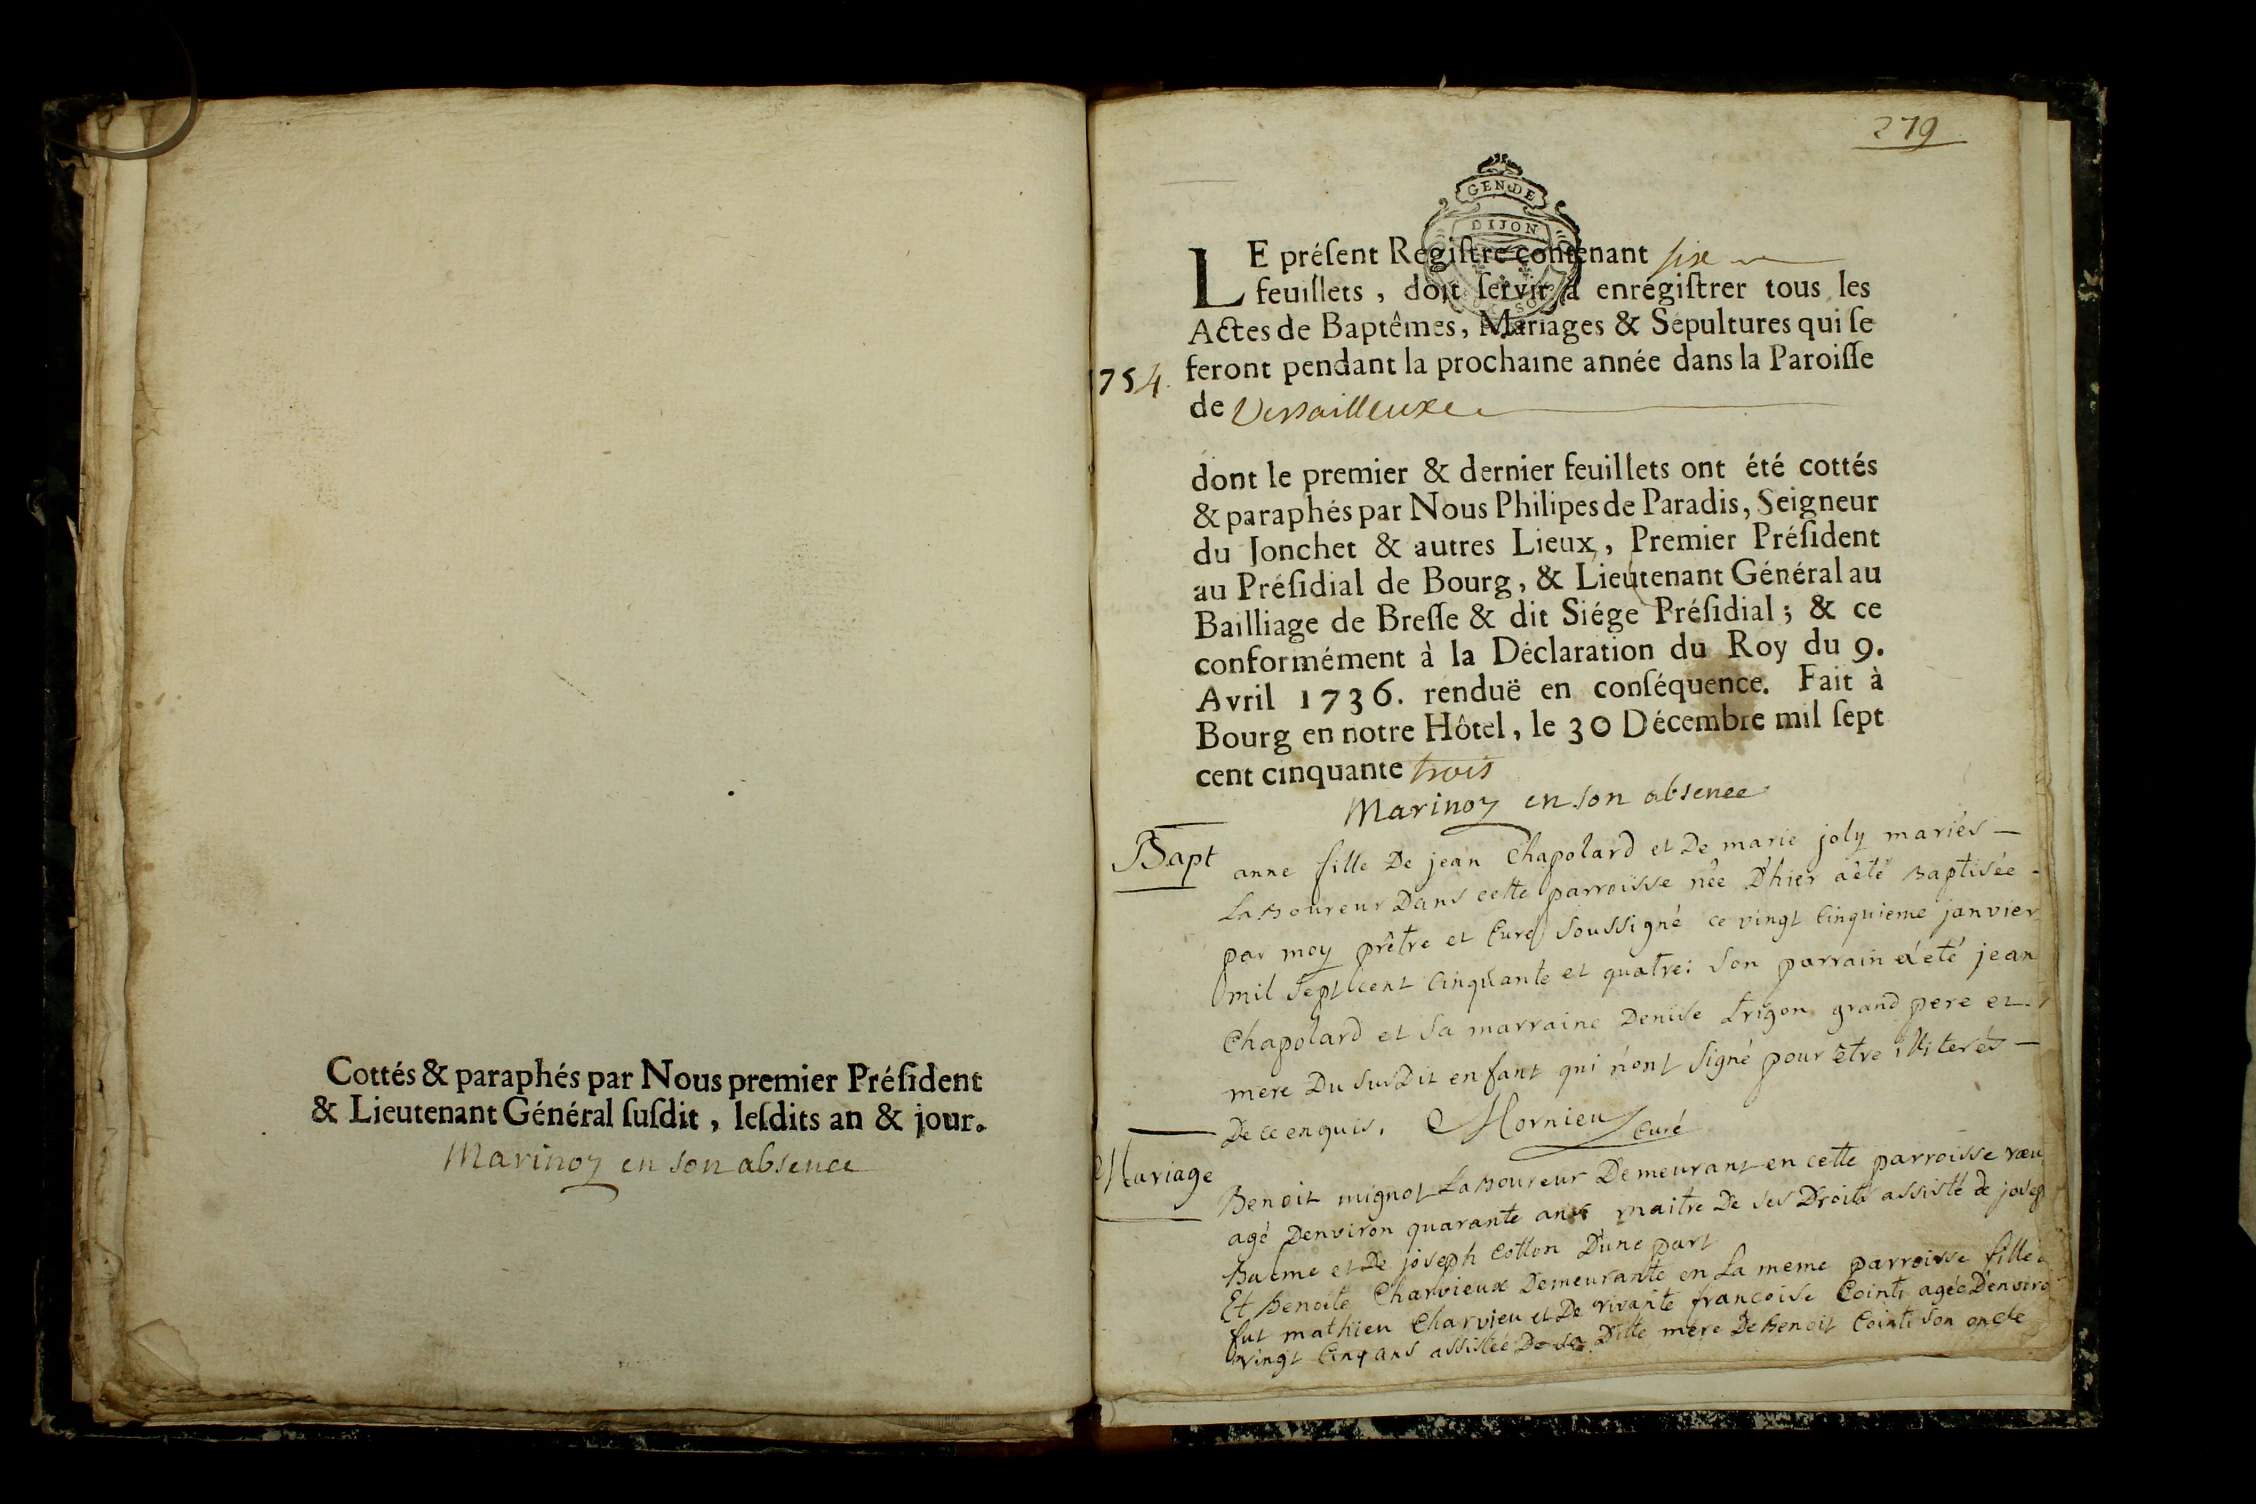 Cottés & paraphés par Nous premier Préſident
& Lieutenant Général ſuſdit, leſdits an & jour.
Marinoz en son absence
279
GEN. DE
DIJON
LE préſent Regiſtre contenant six
feuillets, doit ſervir à enrégiſtrer tous les
Actes de Baptêmes, Mariages & Sépultures qui ſe
1754. feront pendant la prochaine année dans la Paroiſſe
de Versailleuxe
dont le premier & dernier feuillets ont été cottés
& paraphés par Nous Philipes de Paradis, Seigneur
du Jonchet & autres Lieux, Premier Préſident
au Préſidial de Bourg, & Lieutenant Général au
Bailliage de Breſſe & dit Siége Préſidial; & ce
conformément à la Déclaration du Roy du 9.
Avril 1736. renduë en conſéquence. Fait à
Bourg en notre Hôtel, le 30 Décembre mil ſept
cent cinquante trois
Marinoz en son absence
Bapt
anne fille De jean Chapolard et De marie joly mariés
Laboureur Dans cette parroisse née D'hier a été Baptisée
par moy prêtre et Curé soussigné ce vingt Cinquieme janvier
mil sept cent Cinquante et quatre: son parrain a été jean
Chapolard et sa marraine Denise Trigon grand pere et
mere Du susdit enfant qui n'ont signé pour être illiterés
De ce enquis. Mornieu Curé
Mariage
Benoit mignot Laboureur Demeurant en cette parroisse
agé Denviron quarante ans maitre De ses Droits assisté de josep
Balme et De joseph Cotton D'une part
Et Benoite Charvieux Demeurante en La meme parroisse fille
fut mathieu Charvieu et De vivante francoise Cointi agée D'enviro
vingt Cinq ans assistée De sa Ditte mere De Benoit Cointi son oncle